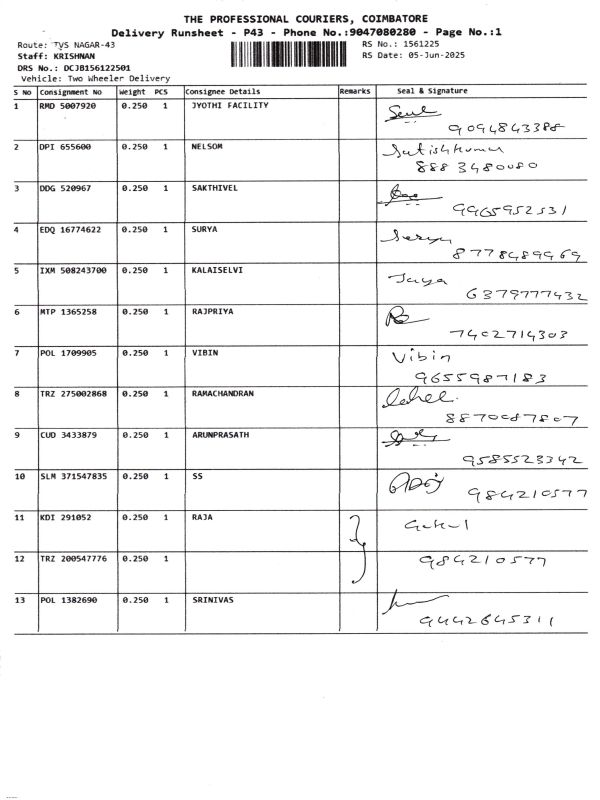 THE PROFESSIONAL COURIERS, COIMBATORE
Delivery Runsheet - P43 - Phone No.:9047080280 - Page No.:1
Route: TVS NAGAR-43
RS No.: 1561225
Staff: KRISHNAN
RS Date: 05-Jun-2025
DRS No.: DCJB156122501
Vehicle: Two Wheeler Delivery
S No Consignment No Weight PCS Consignee Details Remarks Seal & Signature
1 RMD 5007920 0.250 1 JYOTHI FACILITY
9094843388
2 DPI 655600 0.250 1 NELSOM Satishkumar
8883480080
3 DDG 520967 0.250 1 SAKTHIVEL
9965952531
4 EDQ 16774622 0.250 1 SURYA Surya
8778489969
5 IXM 508243700 0.250 1 KALAISELVI Jaya
6379777432
6 MTP 1365258 0.250 1 RAJPRIYA
7402714303
7 POL 1709905 0.250 1 VIBIN Vibin
9655987183
8 TRZ 275002868 0.250 1 RAMACHANDRAN
8870087807
9 CUD 3433879 0.250 1 ARUNPRASATH
9585523342
10 SLM 371547835 0.250 1 SS
984210577
11 KDI 291052 0.250 1 RAJA Gokul
12 TRZ 200547776 0.250 1
984210577
13 POL 1382690 0.250 1 SRINIVAS
9442645311